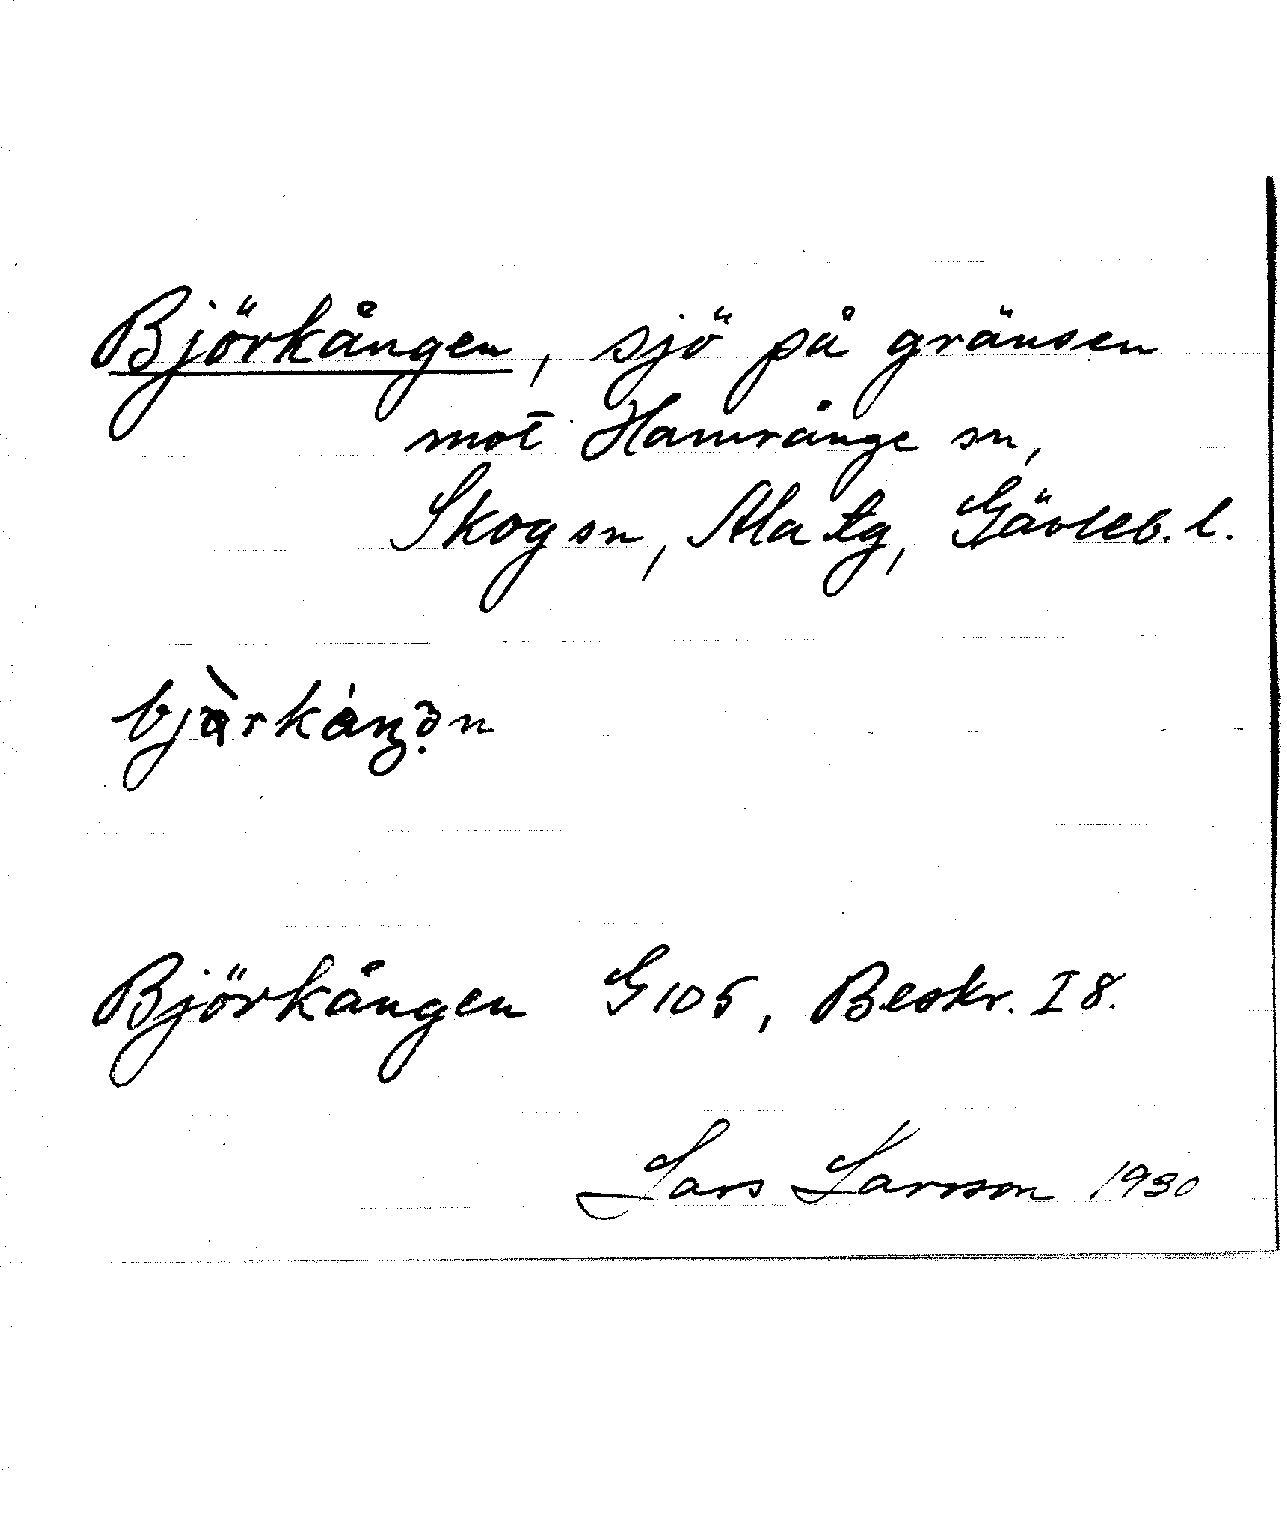 Björkången, sjö på gränsen
mot Hamrånge sn,
Skog sn, Ala tg, Gävleb. l.
Björkången G 105, Beskr. I 8.
Lars Larsson 1930